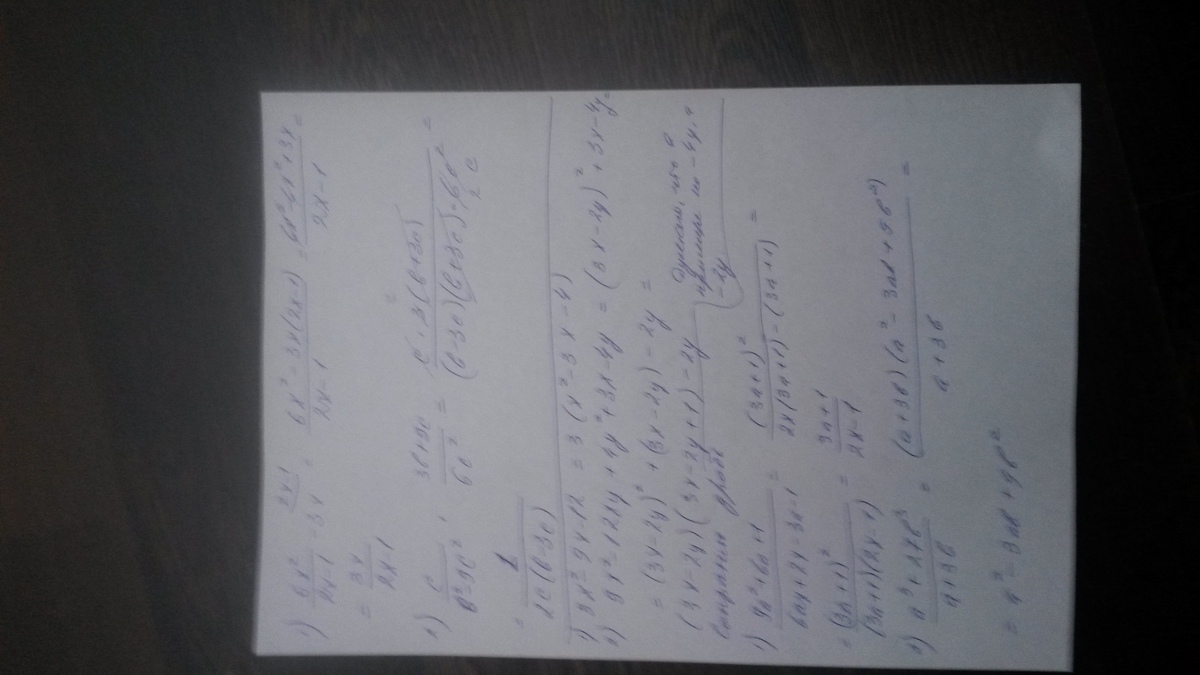 1) 6x²/2x-1 - 3x = 6x² - 3x(2x-1)/2x-1 = 6x² - 6x² + 3x/2x-1 =
= 3x/2x-1
2) c/b²-9c² · 3b+9c/6c² = c · 3(b+3c)/(b-3c)(b+3c)·6c² =
= 1/2c(b-3c)
1) 3x² - 9x - 12 = 3(x² - 3x - 4)
2) 9x² - 12xy + 4y² + 3x - 4y = (3x-2y)² + 3x - 4y =
= (3x-2y)² + (3x-2y) - 2y =
(3x-2y)(3x-2y+1) - 2y
что в примере не -4y, а -2y
Сократить дробь
1) 9a²+6a+1/6ax+2x-3a-1 = (3a+1)²/2x(3a+1)-(3a+1) =
= (3a+1)²/(3a+1)(2x-1) = 3a+1/2x-1
2) a³+27b³/a+3b = (a+3b)(a²-3ab+9b²)/a+3b =
= a² - 3ab + 9b²